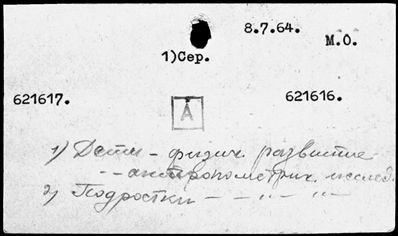 8.7.64.
М.О.
1)Сер.
621617.
А
621616.
1) Дети – физич. развитие
– – антропометрич. исслед.
2) Подростки – – „ – „